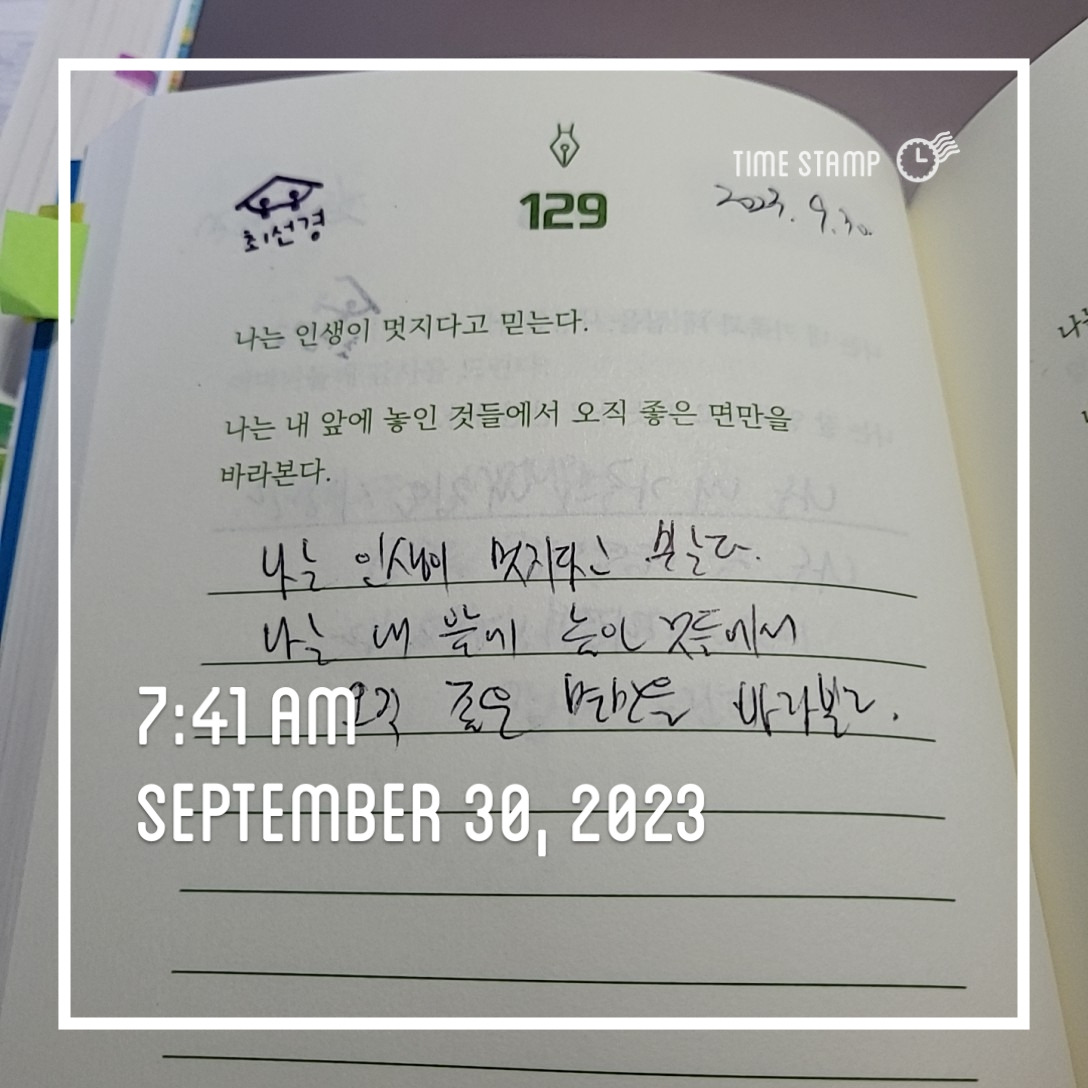 TIME STAMP
129
2023. 9. 30.
최선경
나는 인생이 멋지다고 믿는다.
나는 내 앞에 놓인 것들에서 오직 좋은 면만을
바라본다.
나는 인생이 멋지다고 믿는다.
나는 내 앞에 놓인 것들에서
오직 좋은 면만을 바라본다.
7:41 AM
SEPTEMBER 30, 2023